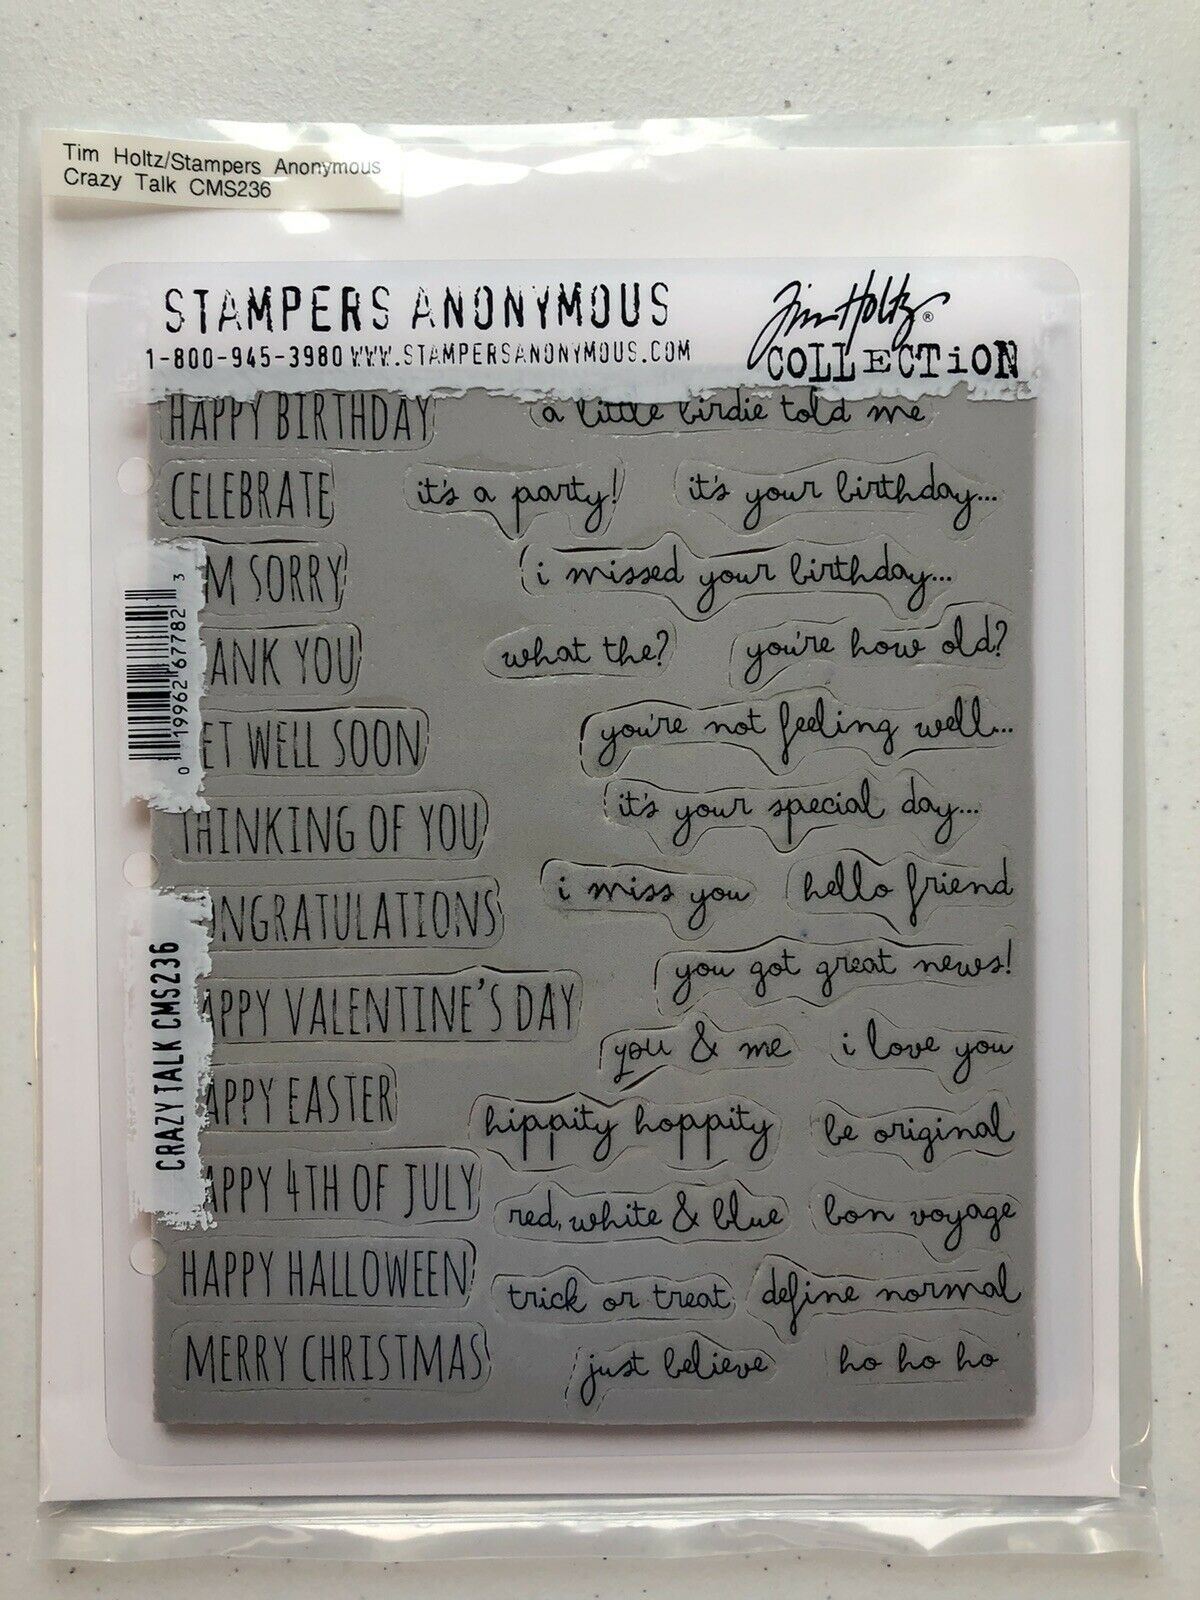 Tim Holtz/Stampers Anonymous
Crazy Talk CMS236
STAMPERS ANONYMOUS
1-800-945-3980 WWW.STAMPERSANONYMOUS.COM
Tim Holtz®
COLLECTiON
HAPPY BIRTHDAY
a little birdie told me
CELEBRATE
it's a party!
it's your birthday...
M SORRY
i missed your birthday...
ANK YOU
what the?
you're how old?
ET WELL SOON
you're not feeling well...
THINKING OF YOU
it's your special day...
i miss you
hello friend
ONGRATULATIONS
you got great news!
APPY VALENTINE'S DAY
you & me
i love you
APPY EASTER
hippity hoppity
be original
APPY 4TH OF JULY
red, white & blue
bon voyage
HAPPY HALLOWEEN
trick or treat
define normal
MERRY CHRISTMAS
just believe
ho ho ho
0 19962 67782 3
CRAZY TALK CMS236